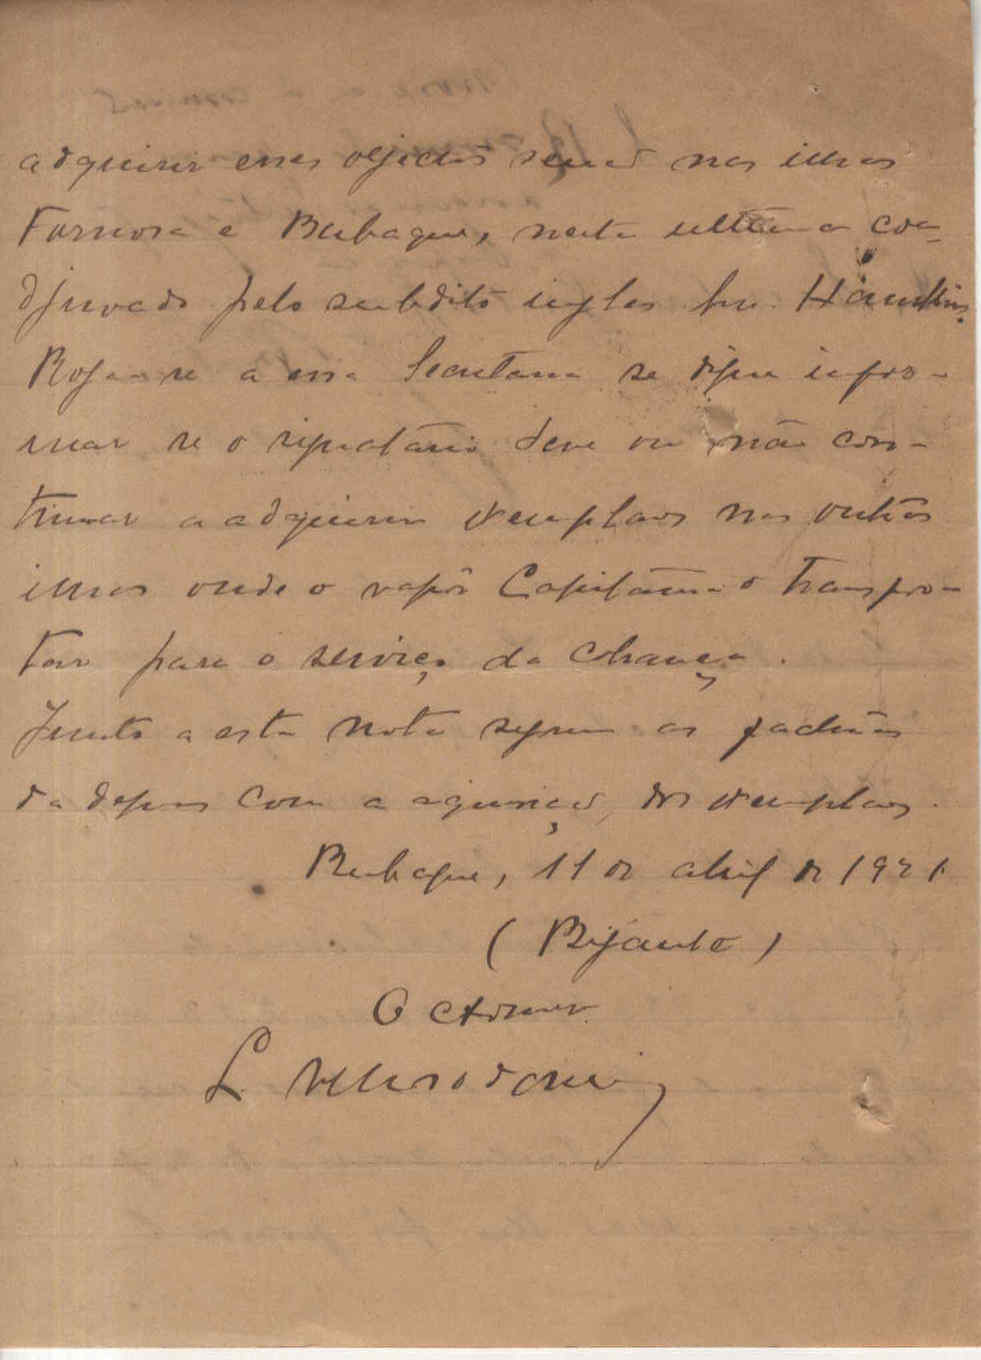 adquirir esses objectos senão nas ilhas
Formosa e Bubaque, nesta ultima coa-
djuvado pelo subdito inglês
Roga-se a essa Secretaria se digne infor-
mar se o signatário deve ou não con-
tinuar a adquirir exemplares nas outras
ilhas onde o vapôr Capitania o transpor-
tar para o serviço da cobrança.
Junto a esta nota seguem as facturas
da despesa com a aquisição dos exemplares.
Bubaque, 11 de abril de 1931
(Bijante)
O
L